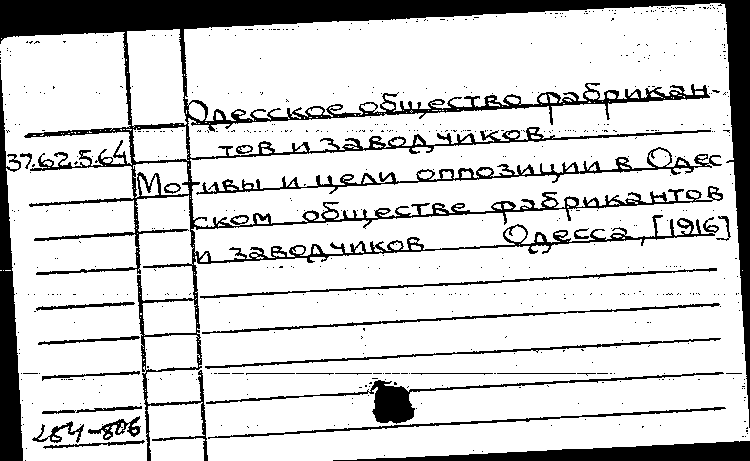 Одесское общество фабрикан-
тов и заводчиков.
37.62.5.64
Мотивы и цели оппозиции в Одес-
ском обществе фабрикантов
и заводчиков Одесса, [1916]
254-806